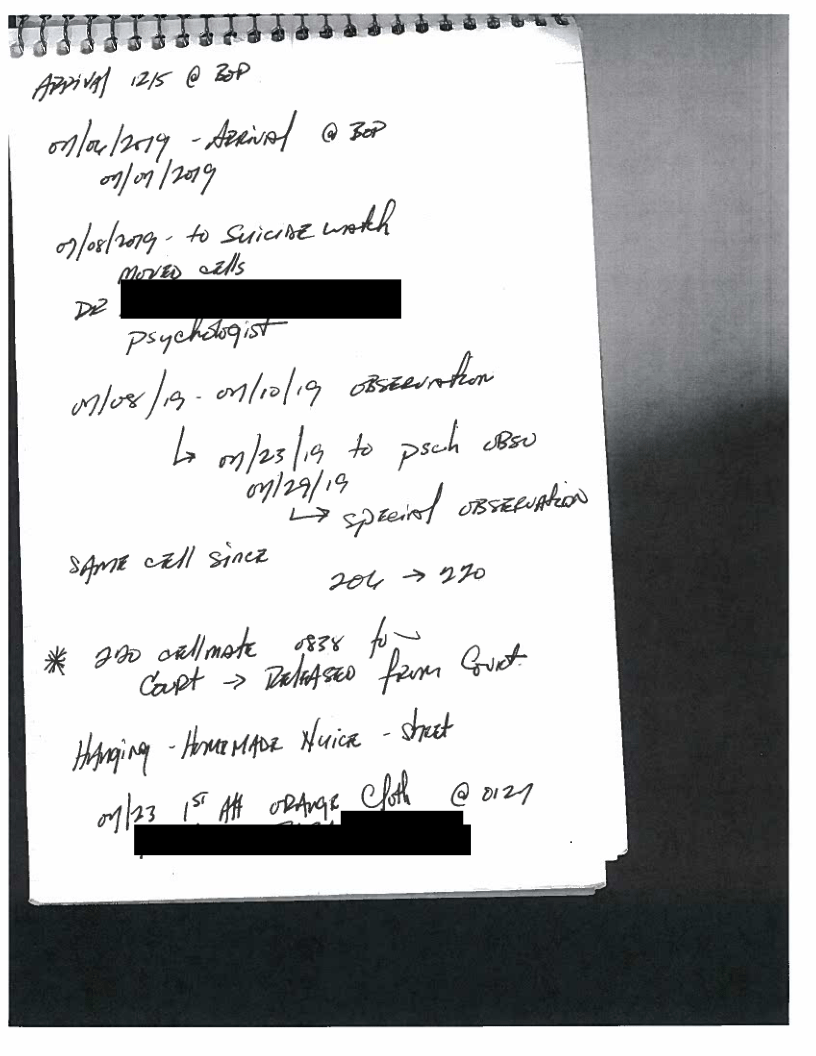 Arrival 12/5 @ BOP
07/06/2019 - Arrival @ BOP
07/07/2019
07/08/2019 - to Suicide watch
moved cells
DR
psychologist
07/08/19 - 07/10/19 OBSERVATION
↳ 07/23/19 to psch OBSV
07/29/19
↳ special OBSERVATION
SAME cell since
204 → 220
* 220 cellmate 0838 to
COURT → RELEASED from Court.
Hanging - HOMEMADE Nuice - sheet
07/23 1ST Att ORANGE Cloth @ 0127